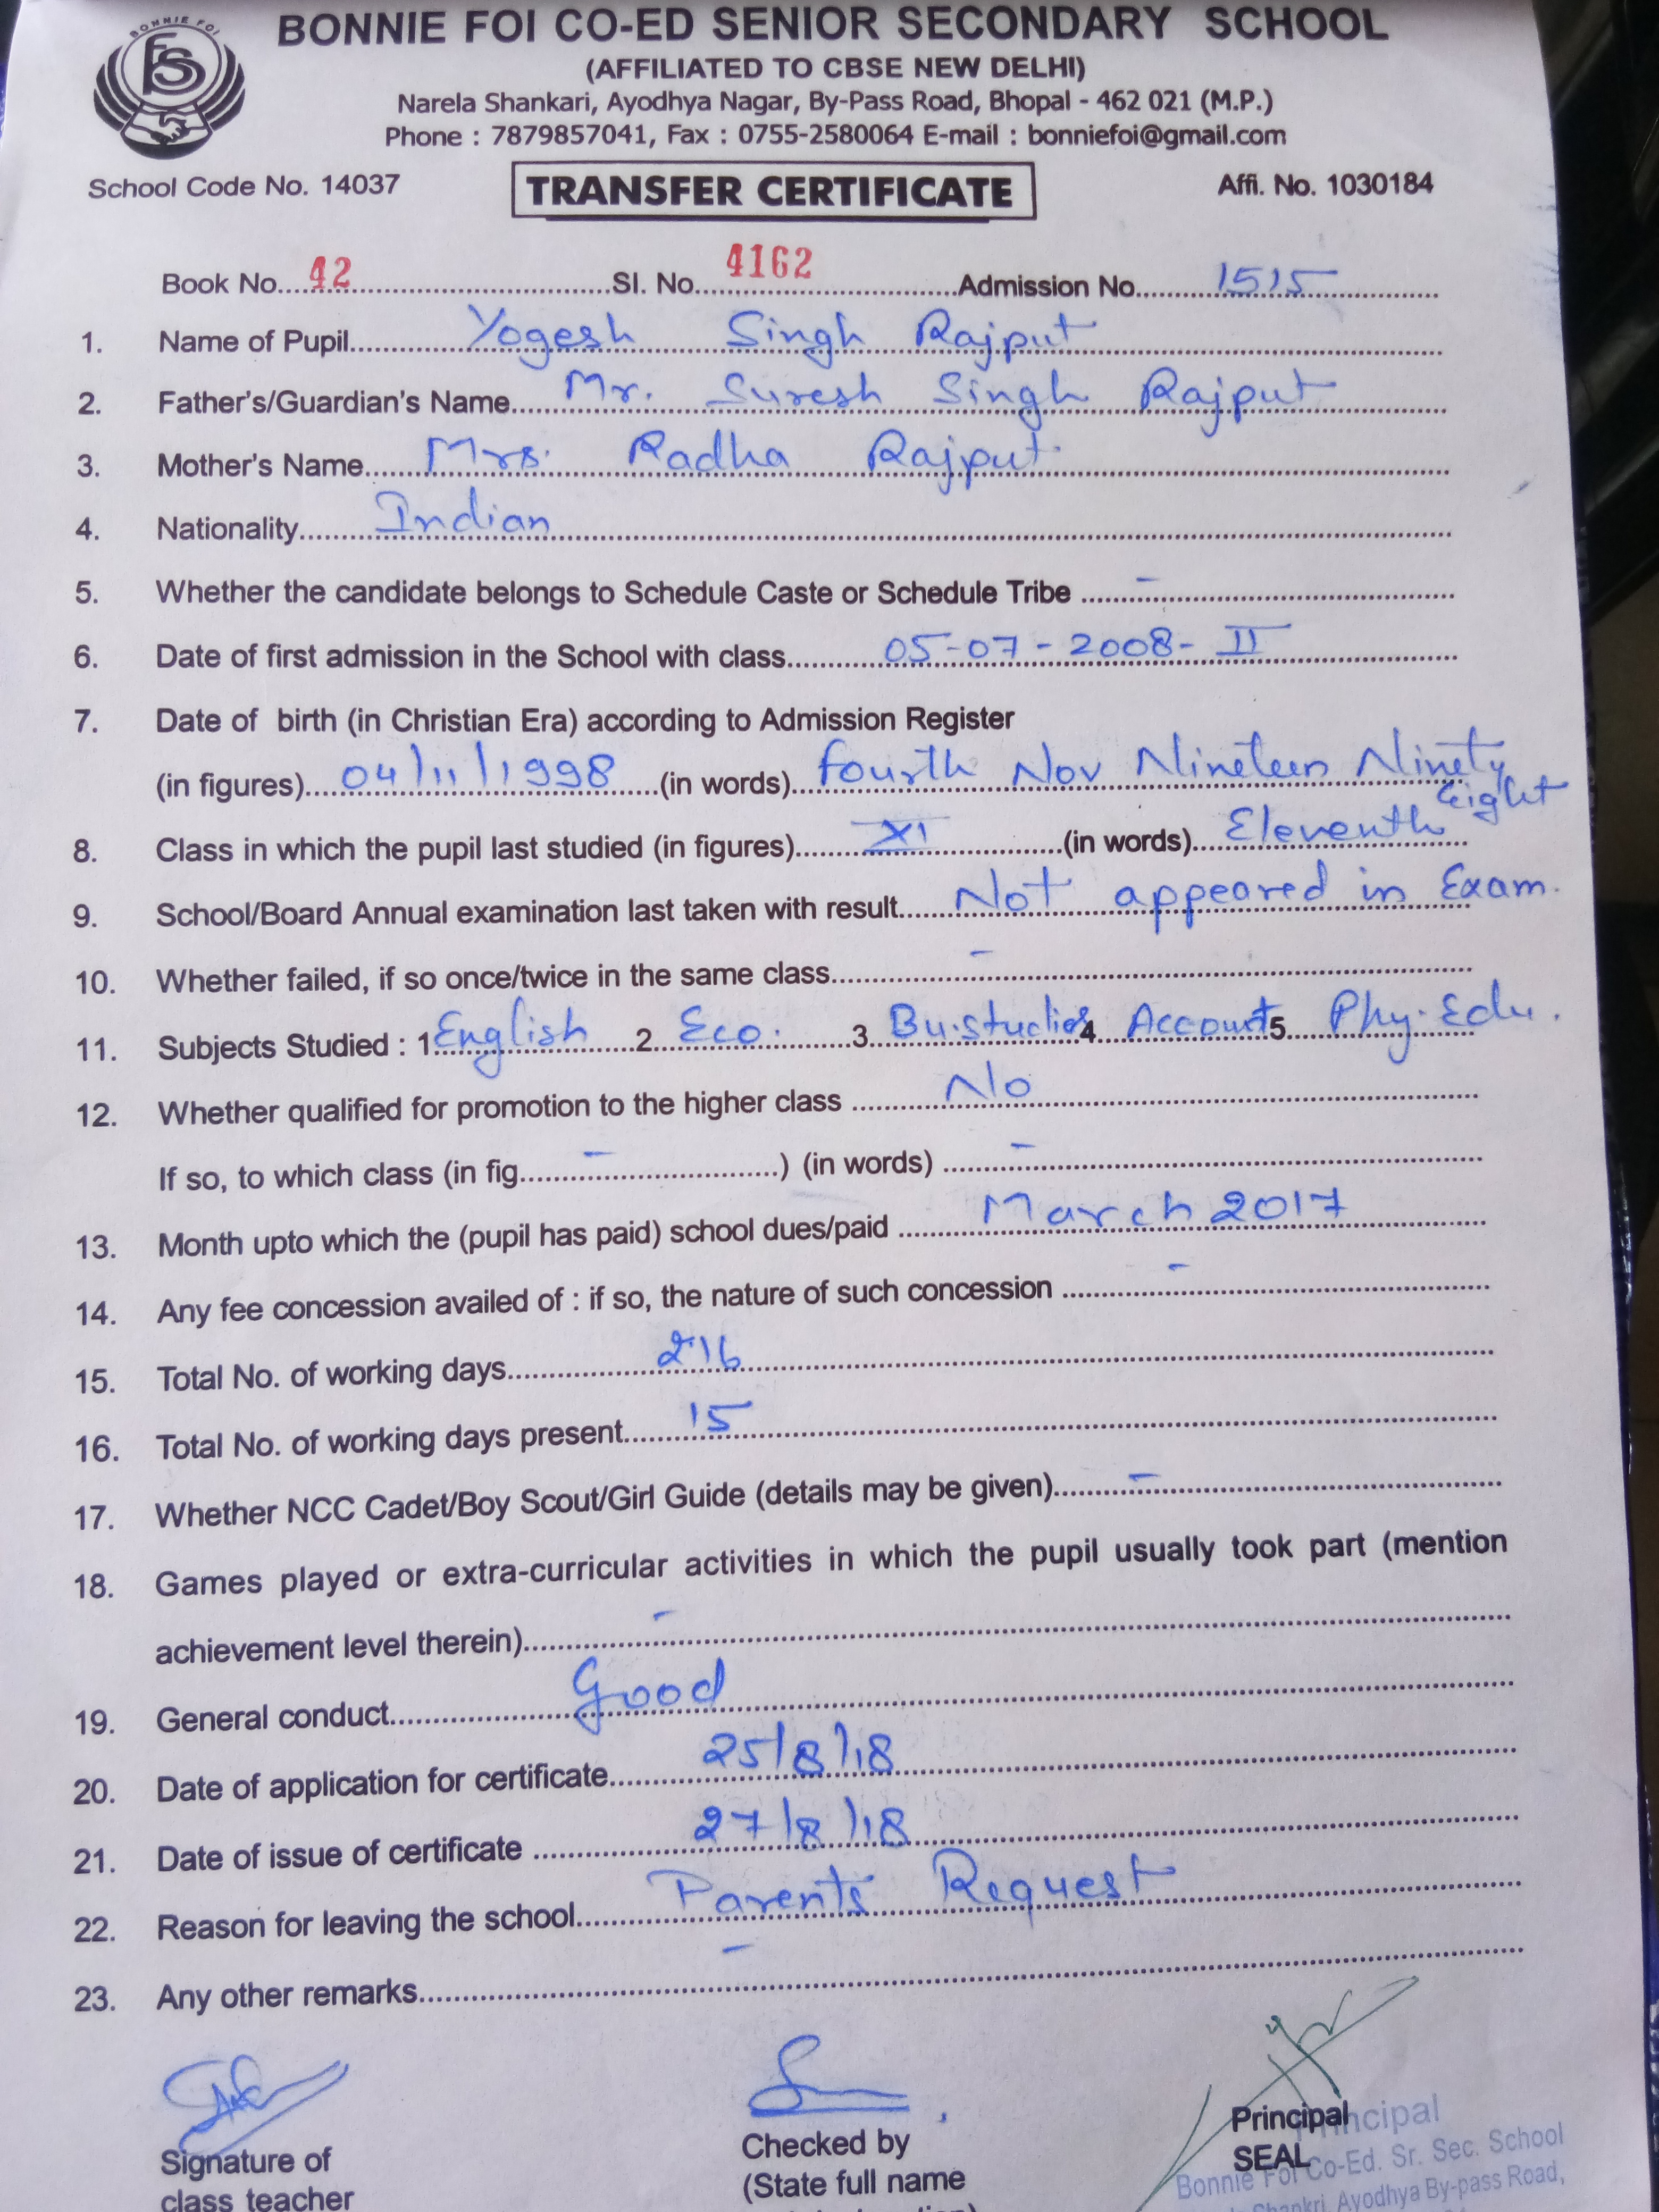 BONNIE FOI
FS
BONNIE FOI CO-ED SENIOR SECONDARY SCHOOL
(AFFILIATED TO CBSE NEW DELHI)
Narela Shankari, Ayodhya Nagar, By-Pass Road, Bhopal - 462 021 (M.P.)
Phone : 7879857041, Fax : 0755-2580064 E-mail : bonniefoi@gmail.com
School Code No. 14037 TRANSFER CERTIFICATE Affi. No. 1030184
Book No. 42 Sl. No. 4162 Admission No. 1515
1. Name of Pupil Yogesh Singh Rajput
2. Father's/Guardian's Name Mr. Suresh Singh Rajput
3. Mother's Name Mrs. Radha Rajput
4. Nationality Indian
5. Whether the candidate belongs to Schedule Caste or Schedule Tribe -
6. Date of first admission in the School with class 05-07-2008- II
7. Date of birth (in Christian Era) according to Admission Register
(in figures) 04/11/1998 (in words) fourth Nov Nineteen Ninety
Eight
8. Class in which the pupil last studied (in figures) XI (in words) Eleventh
9. School/Board Annual examination last taken with result Not appeared in Exam.
10. Whether failed, if so once/twice in the same class -
11. Subjects Studied : 1 English 2. Eco. 3. Bu.studies 4. Accounts 5. Phy. Edu.
12. Whether qualified for promotion to the higher class No
If so, to which class (in fig. - ) (in words) -
13. Month upto which the (pupil has paid) school dues/paid March 2017
14. Any fee concession availed of : if so, the nature of such concession -
15. Total No. of working days 216
16. Total No. of working days present 15
17. Whether NCC Cadet/Boy Scout/Girl Guide (details may be given) -
18. Games played or extra-curricular activities in which the pupil usually took part (mention
achievement level therein) -
19. General conduct Good
20. Date of application for certificate 25/8/18
21. Date of issue of certificate 27/8/18
22. Reason for leaving the school Parents Request
23. Any other remarks -
Signature of
class teacher
Checked by
(State full name
Principal
SEAL
Principal
Bonnie Foi Co-Ed. Sr. Sec. School
Ayodhya By-pass Road,